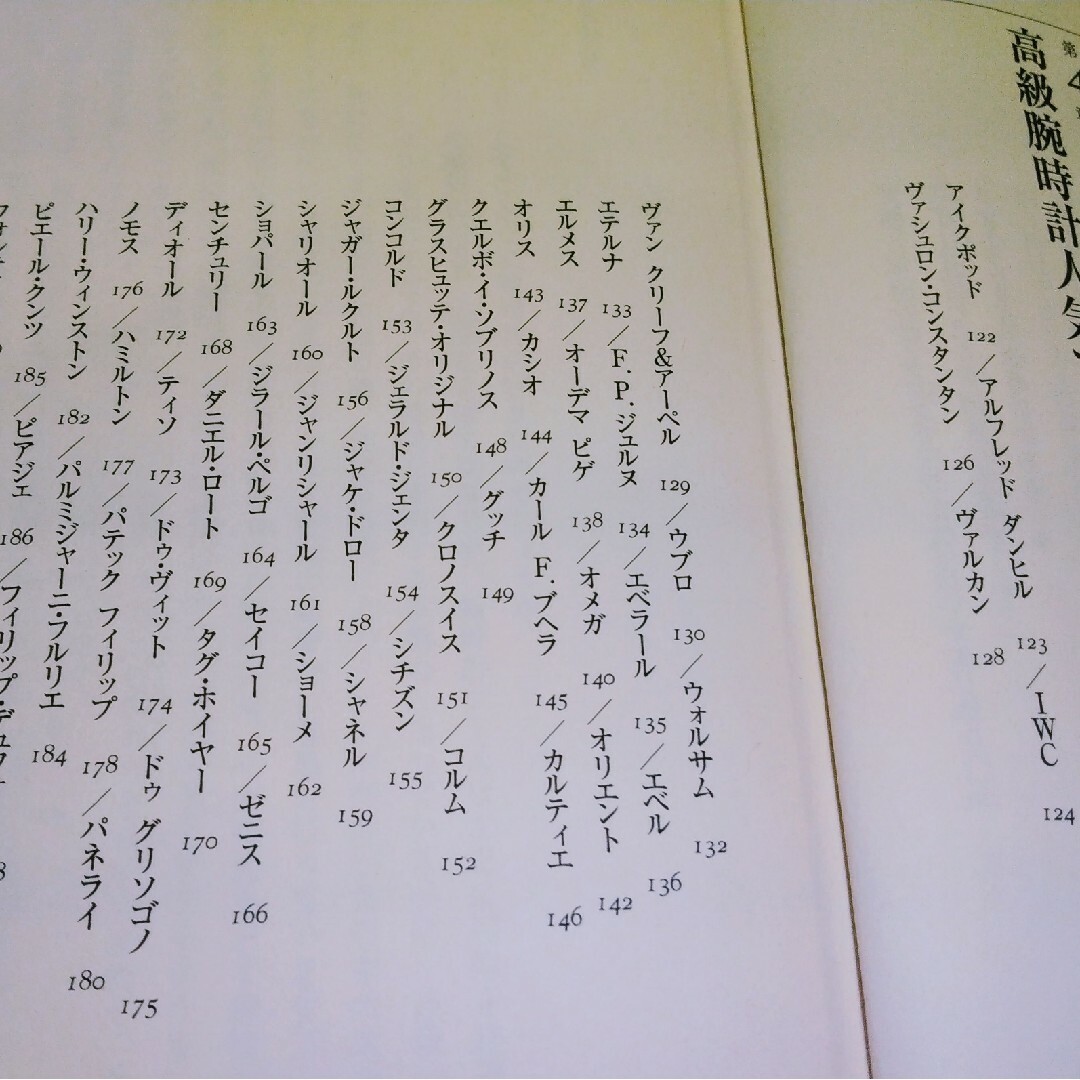 第4
高級腕時計人気
アイクポッド 122／アルフレッド ダンヒル 123／IWC 124
ヴァシュロン・コンスタンタン 126／ヴァルカン 128
ヴァン クリーフ&アーペル 129／ウブロ 130／ウォルサム 132
エテルナ 133／F.P.ジュルヌ 134／エベラール 135／エベル 136
エルメス 137／オーデマ ピゲ 138／オメガ 140／オリエント 142
オリス 143／カシオ 144／カール F.ブヘラ 145／カルティエ 146
クエルボ・イ・ソブリノス 148／グッチ 149
グラスヒュッテ・オリジナル 150／クロノスイス 151／コルム 152
コンコルド 153／ジェラルド・ジェンタ 154／シチズン 155
ジャガー・ルクルト 156／ジャケ・ドロー 158／シャネル 159
シャリオール 160／ジャンリシャール 161／ショーメ 162
ショパール 163／ジラール・ペルゴ 164／セイコー 165／ゼニス 166
センチュリー 168／ダニエル・ロート 169／タグ・ホイヤー 170
ディオール 172／ティソ 173／ドゥ・ヴィット 174／ドゥ グリソゴノ 175
ノモス 176／ハミルトン 177／パテック フィリップ 178／パネライ 180
ハリー・ウィンストン 182／パルミジャーニ・フルリエ 184
ピエール・クンツ 185／ピアジェ 186／フィリップ・デュフ